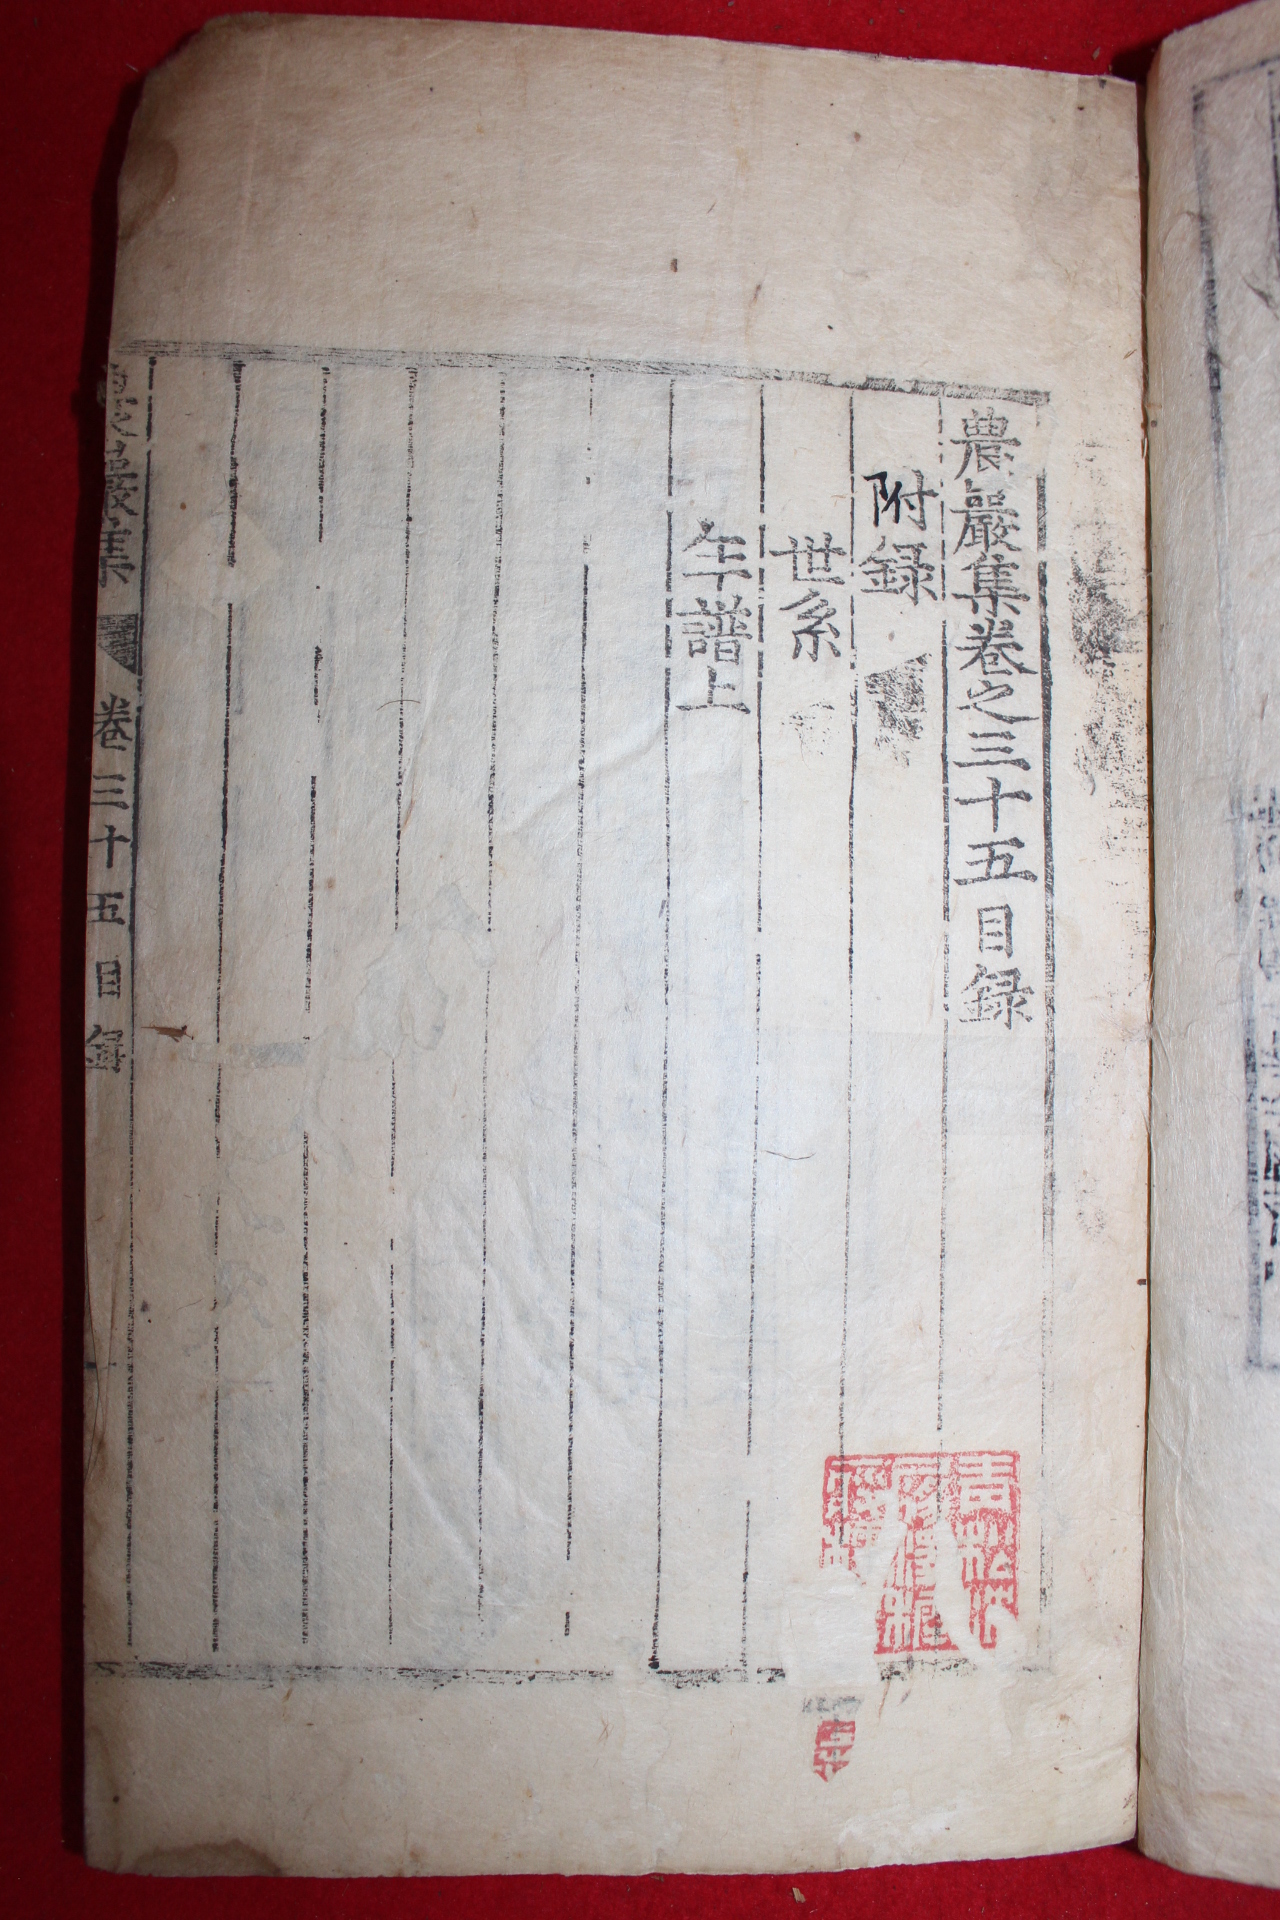 農巖集卷之三十五目録
附録
世系
年譜上
農巖集 卷三十五 目録 一